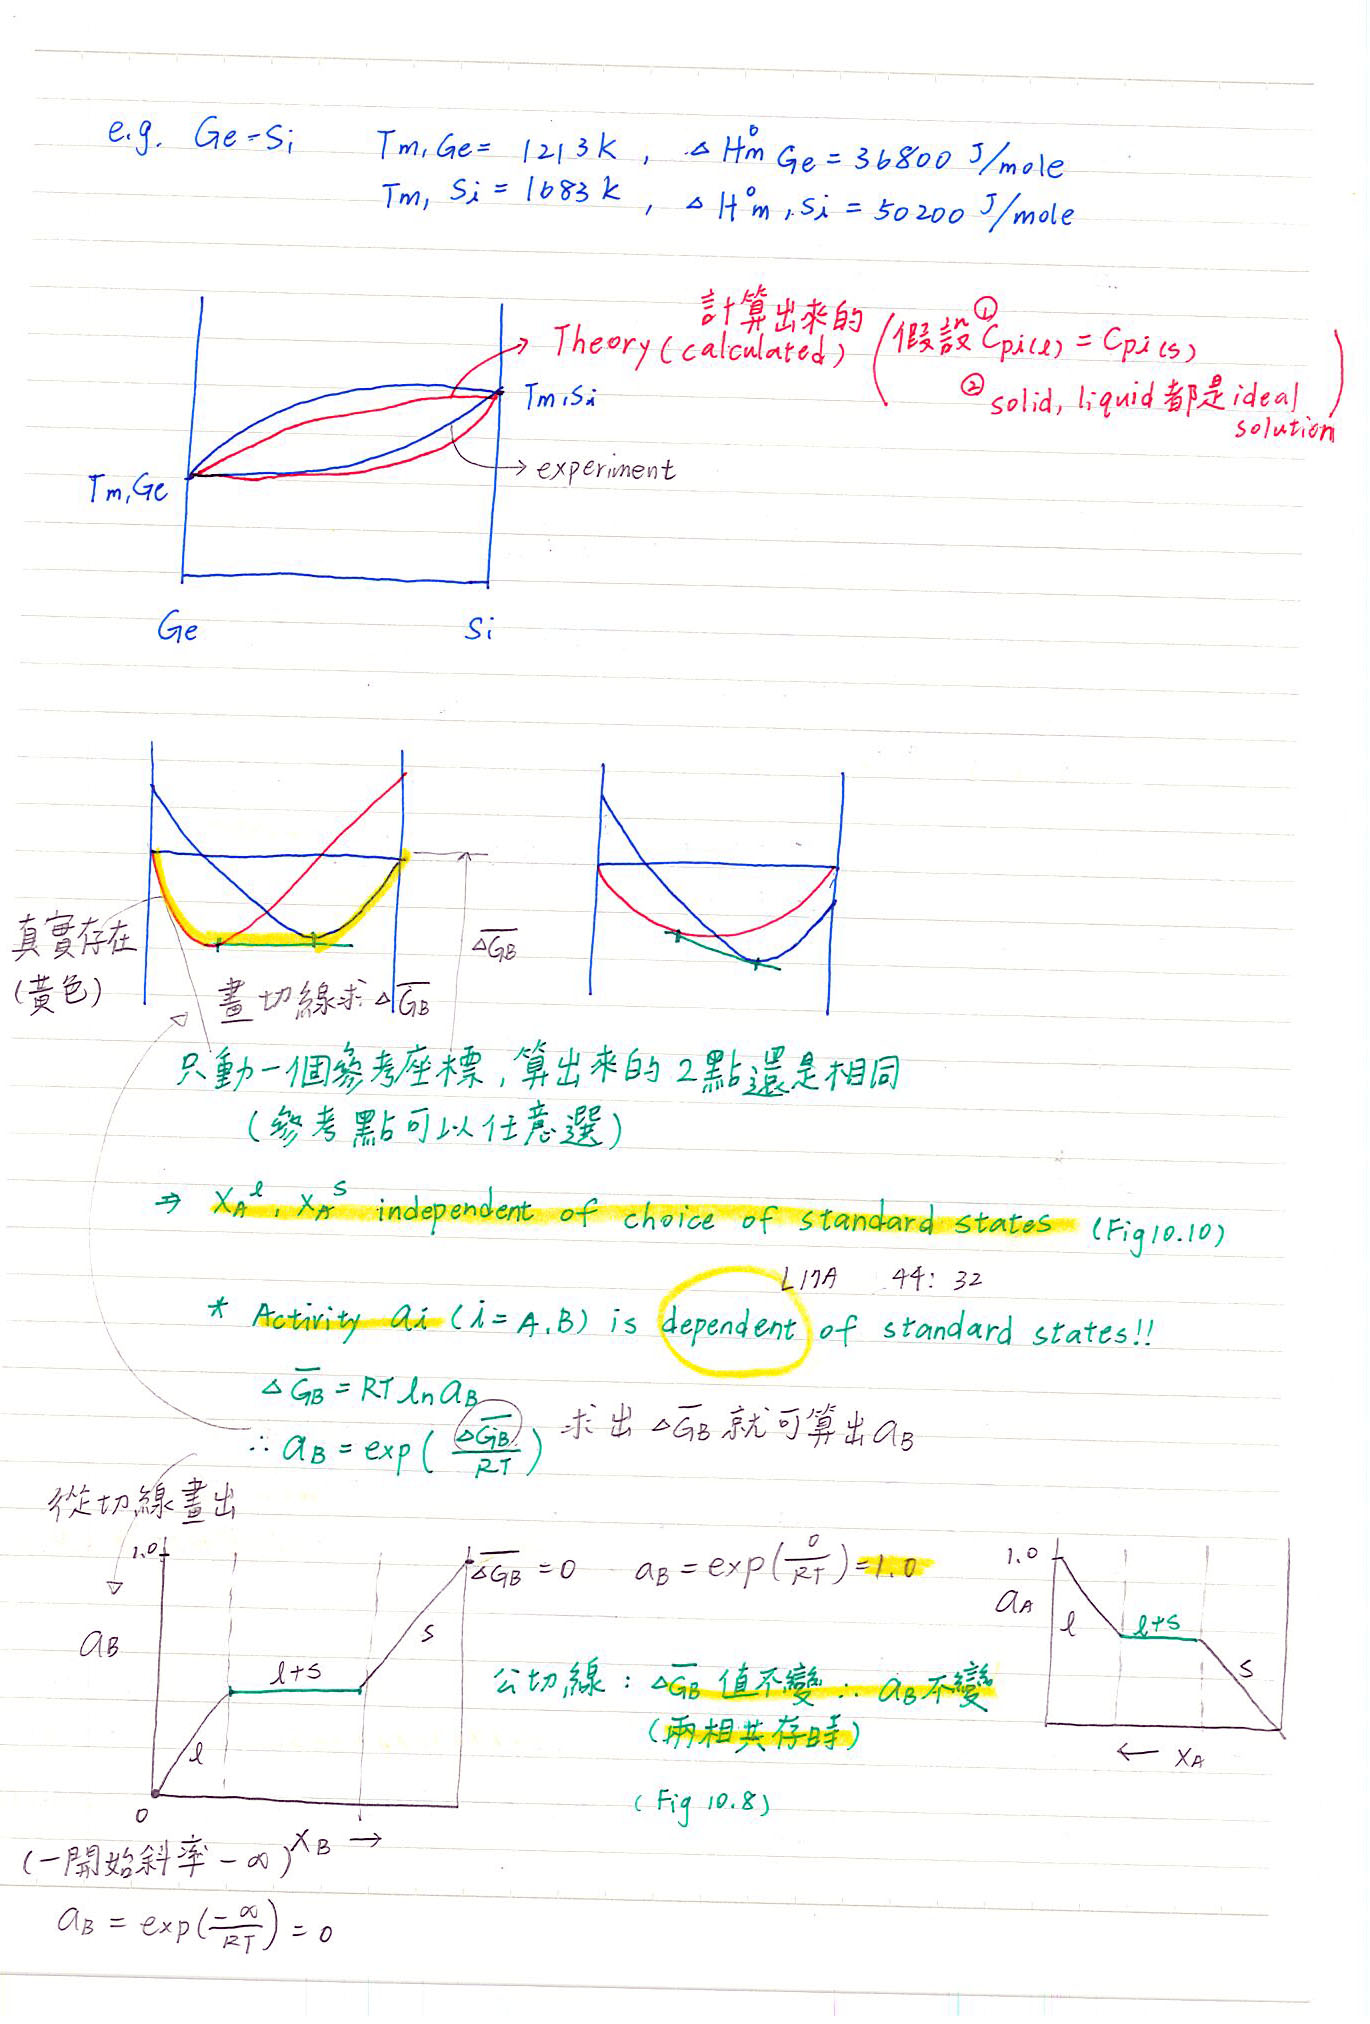 e.g. Ge-Si Tm,Ge = 1213K , △H°m Ge = 36800 J/mole
Tm, Si = 1683K , △H°m, Si = 50200 J/mole
計算出來的
Theory (calculated)
(假設 ① Cpi(l) = Cpi(s)
② solid, liquid 都是 ideal
solution)
Tm,Si
experiment
Tm,Ge
Ge Si
真實存在
(黃色)
△G̅B
畫切線求 △G̅B
只動一個參考座標, 算出來的 2點還是相同
(參考點可以任意選)
⇒ XA^l , XA^s independent of choice of standard states (Fig 10.10)
L17A 44:32
* Activity ai (i = A,B) is dependent of standard states!!
△G̅B = RT ln aB
∴ aB = exp( △G̅B / RT ) 求出 △G̅B 就可算出 aB
從切線畫出
1.0
aB
l
l+s
s
0
XB →
△G̅B = 0 aB = exp( 0 / RT ) = 1.0
公切線 : △G̅B 值不變 ∴ aB 不變
(兩相共存時)
(Fig 10.8)
1.0
aA
l
l+s
s
← XA
(一開始斜率 -∞)
aB = exp( -∞ / RT ) = 0